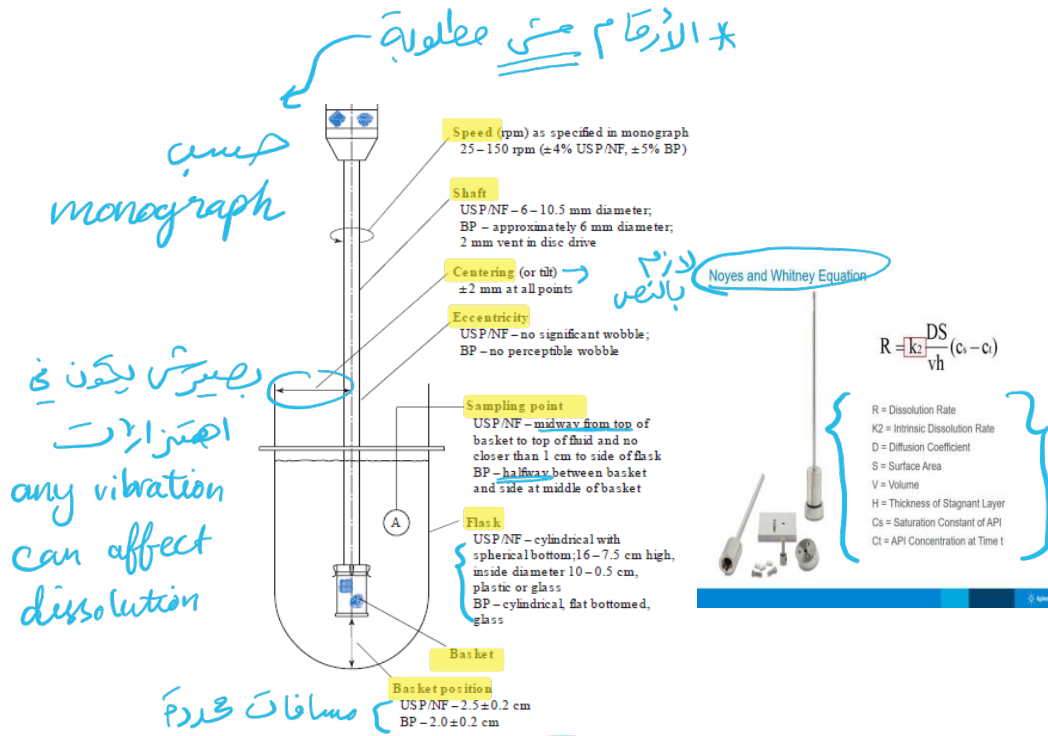 * الأرقام مش مطلوبة
حسب
monograph
Speed (rpm) as specified in monograph
25–150 rpm (±4% USP/NF, ±5% BP)
Shaft
USP/NF–6–10.5 mm diameter;
BP – approximately 6 mm diameter;
2 mm vent in disc drive
Centering (or tilt) →
±2 mm at all points
لازم
بالنص
Eccentricity
USP/NF–no significant wobble;
BP–no perceptible wobble
بصيرش يكون في
اهتزازات
any vibration
can affect
dissolution
Sampling point
USP/NF–midway from top of
basket to top of fluid and no
closer than 1 cm to side of flask
BP–halfway between basket
and side at middle of basket
A
Flask
USP/NF–cylindrical with
spherical bottom;16–7.5 cm high,
inside diameter 10–0.5 cm,
plastic or glass
BP–cylindrical, flat bottomed,
glass
Basket
Basket position
USP/NF–2.5±0.2 cm
BP–2.0±0.2 cm
مسافات محددة
Noyes and Whitney Equation
R = k₂ DS/vh (cₛ – cₜ)
R = Dissolution Rate
K2 = Intrinsic Dissolution Rate
D = Diffusion Coefficient
S = Surface Area
V = Volume
H = Thickness of Stagnant Layer
Cs = Saturation Constant of API
Ct = API Concentration at Time t